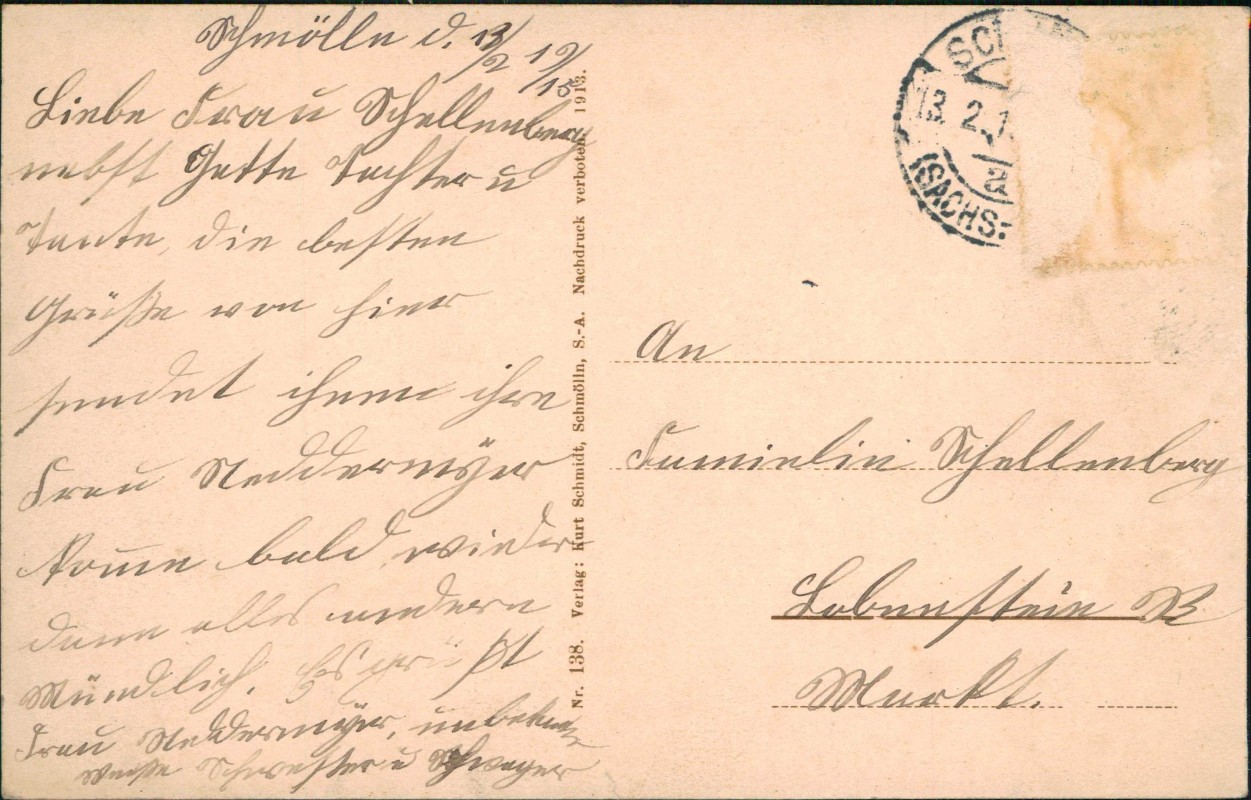 Schmölln d. 13/2 19/15
Liebe Frau Schellenberg
nebst Gatte Tochter u
Tante, die besten
Grüße von hier
sendet ihnen ihre
Frau Neddermeyer
komme bald wieder
dann alles andere
Mündlich. Es grüßt
Frau Neddermeyer, unbekannter
weise Schwester u Schwager
Nr. 138. Verlag: Kurt Schmidt, Schmölln, S.-A. Nachdruck verboten. 1913.
13. 2. 1
(SACHS.-
An
Familie Schellenberg
Lobenstein R
Markt.